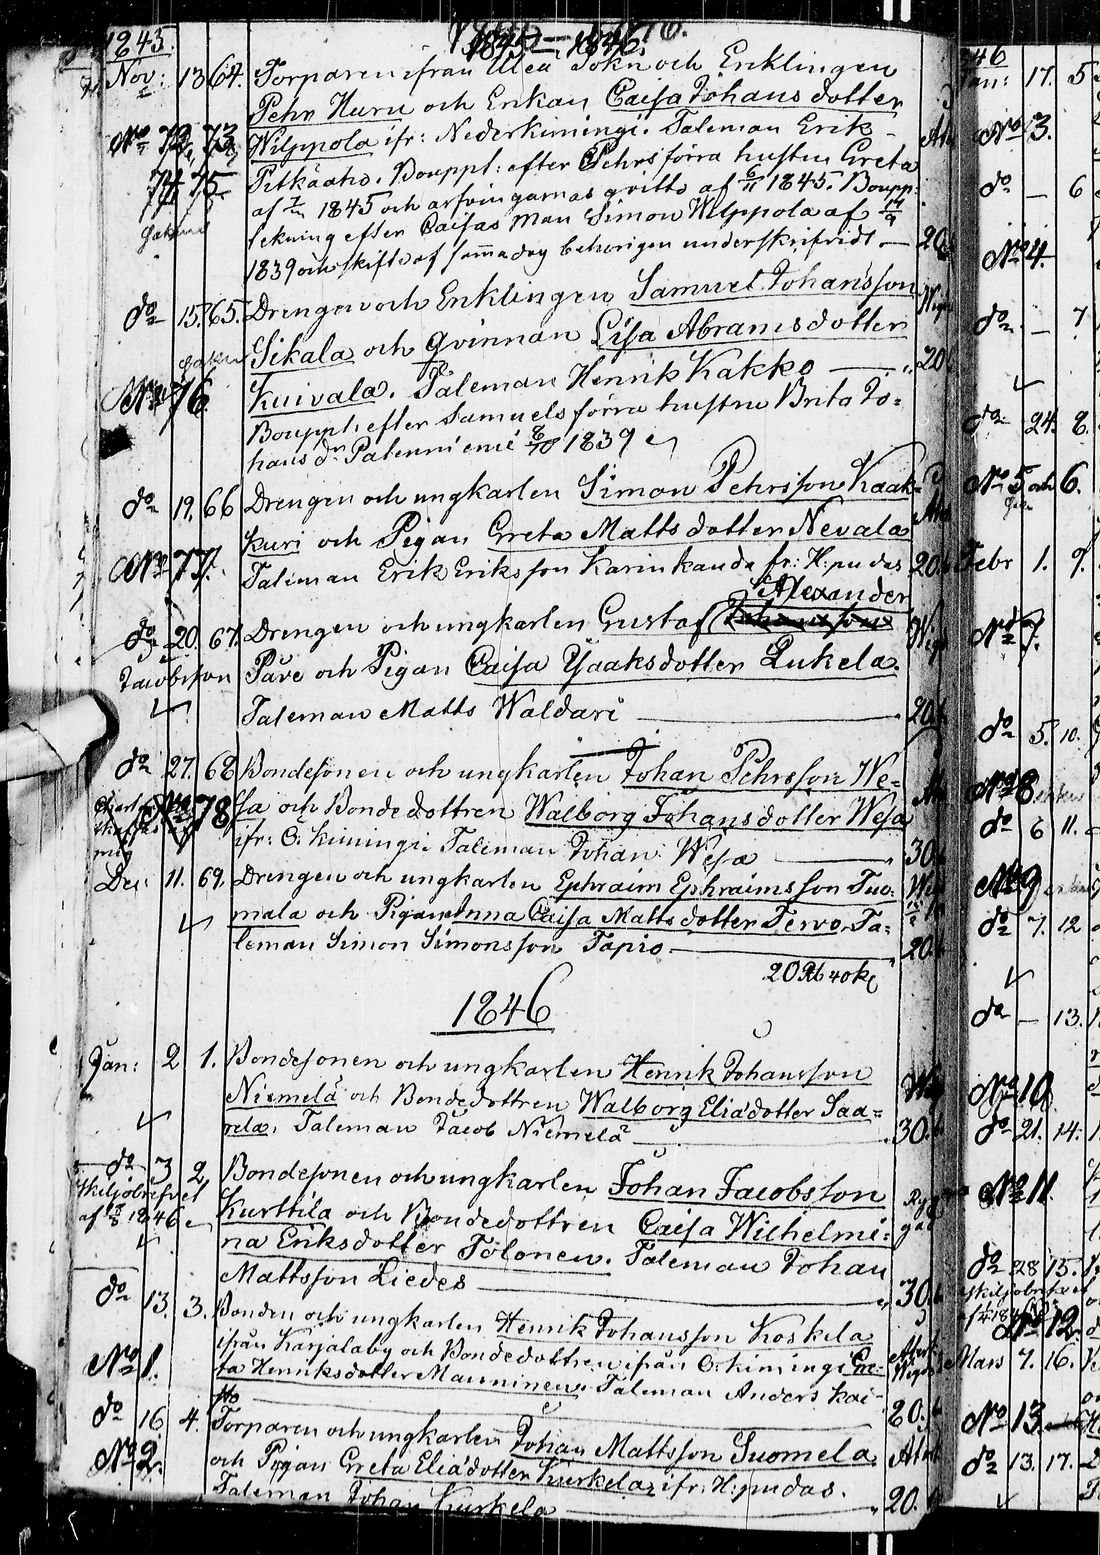 1845 – 1846.
1845.
Nov: 13 64. Torparen ifrån Uleå Sokn och Enklingen
Pehr Huru och Enkan Caisa Johansdotter
No 72, 73 Wilppola ifr: Nederkimingi. Taleman Erik
74 75 Pitkäaho. Bouppt: efter Pehrs förra hustru Greta
af 1845 och arfvingarnas qvitto af 6/11 1845. Boupp-
teckning efter Caisas man Simon Wilppola af 14/9
1839 och skifte af samma dag behörigen underskrifvidt — 20
do 15. 65. Drengen och Enklingen Samuel Johansson
Sikala och qvinnan Lisa Abramsdotter
No 76 Kuivala. Taleman Henrik Kakko — 20
Bouppt: efter Samuels förra hustru Brita Jo=
hans dr Palonniemi 8/10 1839
do 19. 66 Drengen och ungkarlen Simon Pehrsson Kaak-
kuri och Pigan Greta Mattsdotter Nevala
No 77. Taleman Erik Eriksson Karinkanda fr: H:pudas 20
Alexander
do 20. 67. Drengen och ungkarlen Gustaf
Jacobsson Päve och Pigan Caisa Isaaksdotter Lukela.
Taleman Matts Waldari — 20
do 27. 68 Bondesonen och ungkarlen Johan Pehrsson We=
No 78 sa och Bondedottren Walborg Johansdotter Wesa
ifr: Ö. kimingi. Taleman Johan Wesa — 30
Dec: 11. 69. Drengen och ungkarlen Ephraim Ephraimsson Tuo-
mala och Pigan Anna Caisa Mattsdotter Tervo. Ta=
leman Simon Simonsson Tapio — 20
1846
Jan: 2 1. Bondesonen och ungkarlen Henrik Johansson
Niemelä och Bondedottren Walborg Eliädotter Saa=
rela. Taleman Jacob Niemelä — 30
do 3 2. Bondesonen och ungkarlen Johan Jacobsson
Skiljobrefvet Kurttila och Bondedottren Caisa Wilhelmi=
af 1846 na Eriksdotter Tolonen. Taleman Johan
Mattsson Liedes — 30
do 13. 3. Bonden och ungkarlen Henrik Johansson Koskela
ifrån Karjalaby och Bondedottren ifrån Ö: kimingi Gre=
No 1. ta Henriksdotter Manninen. Taleman Anders Kai-
sto — 20
do 16 4. Torparen och ungkarlen Johan Mattsson Suomela
No 2. och Pigan Greta Eliädotter Kurkela, ifr: H:pudas.
Taleman Johan Kurkela — 20
1846
Jan: 17. 5
No 3.
do — 6
No 4.
do — 7
do 24. 8.
No 5 och 6.
Febr 1. 9.
No 7.
do 5. 10.
No 8
do 6 11.
No 9
do 7. 12
do — 13.
No 10
do 21. 14.
No 11.
do 28 15.
No 12.
Mars 7. 16.
No 13.
do 13. 17.